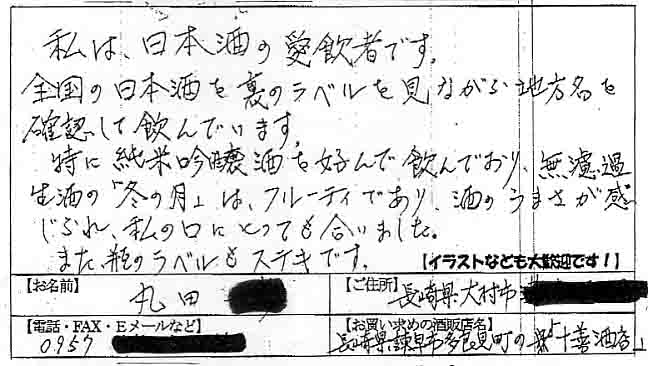 私は、日本酒の愛飲者です。
全国の日本酒を裏のラベルを見ながら地方名を
確認して飲んでいます。
特に純米吟醸酒を好んで飲んでおり、無濾過
生酒の「冬の月」は、フルーティであり、酒のうまさが感
じられ、私の口にとっても合いました。
また瓶のラベルもステキです。
【イラストなども大歓迎です!】
【お名前】 丸田
【ご住所】 長崎県大村市
【電話・FAX・Eメールなど】 0957
【お買い求めの酒販店名】
長崎県諫早市多良見町の 「十善酒